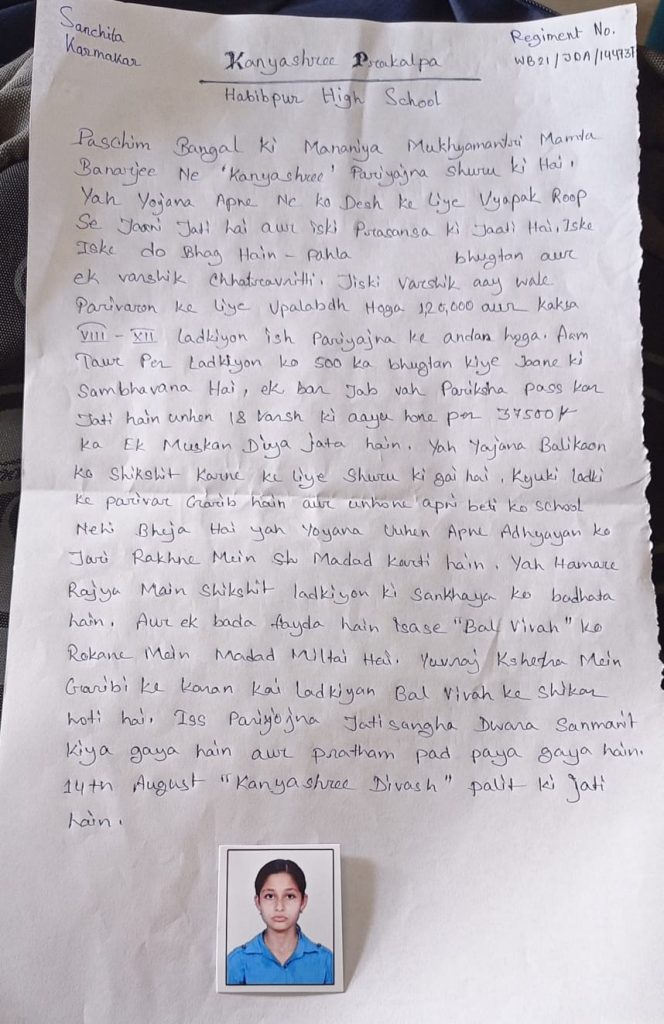 Sanchita
Karmakar
Regiment No.
WB21/JDA/144737
Kanyashree Prakalpa
Habibpur High School
Paschim Bangal ki Mananiya Mukhyamantri Mamta
Banarjee Ne 'Kanyashree' Pariyajna Shuru ki Hai.
Yah Yojana Apne Ne ko Desh ke liye Vyapak Roop
Se Jaani Jati hai aur iski Prasansa ki Jaati Hai. Iske
Iske do Bhag Hain - Pahla bhugtan aur
ek varshik Chhatravrithi. Jiski Varshik aay wale
Parivaron ke liye Upalabdh Hoga 120,000 aur Kaksa
VIII - XII ladkiyon ish Pariyajna ke andar hoga. Aam
Taur Per Ladkiyon ko 500 ka bhugtan kiye Jaane ki
Sambhavana Hai, ek bar Jab vah Pariksha pass kar
Jati hain unhen 18 Varsh ki aayu hone per 37500/-
ka Ek Muskan Diya Jata hain. Yah Yajana Balikaon
ko Shikshit Karne ke liye Shuru ki gai hai, Kyuki ladki
ke parivar Garib hain aur unhone apni beti ko school
Nehi Bheja Hai yah Yoyana Unhen Apne Adhyayan ko
Jari Rakhne Mein Sh Madad karti hain. Yah Hamare
Rajya Main Shikshit ladkiyon ki Sankhaya ko badhata
hain. Aur ek bada fayda hain Isase "Bal Vivah" ko
Rokane Mein Madad Miltai Hai. Yuvraj Kshetra Mein
Garibi ke karan Kai Ladkiyan Bal Vivah ke Shikar
hoti hai. Iss Pariyojna Jatisangha Dwara Sanmanit
kiya gaya hain aur pratham pad paya gaya hain.
14th August "Kanyashree Divash" palit ki Jati
hain.